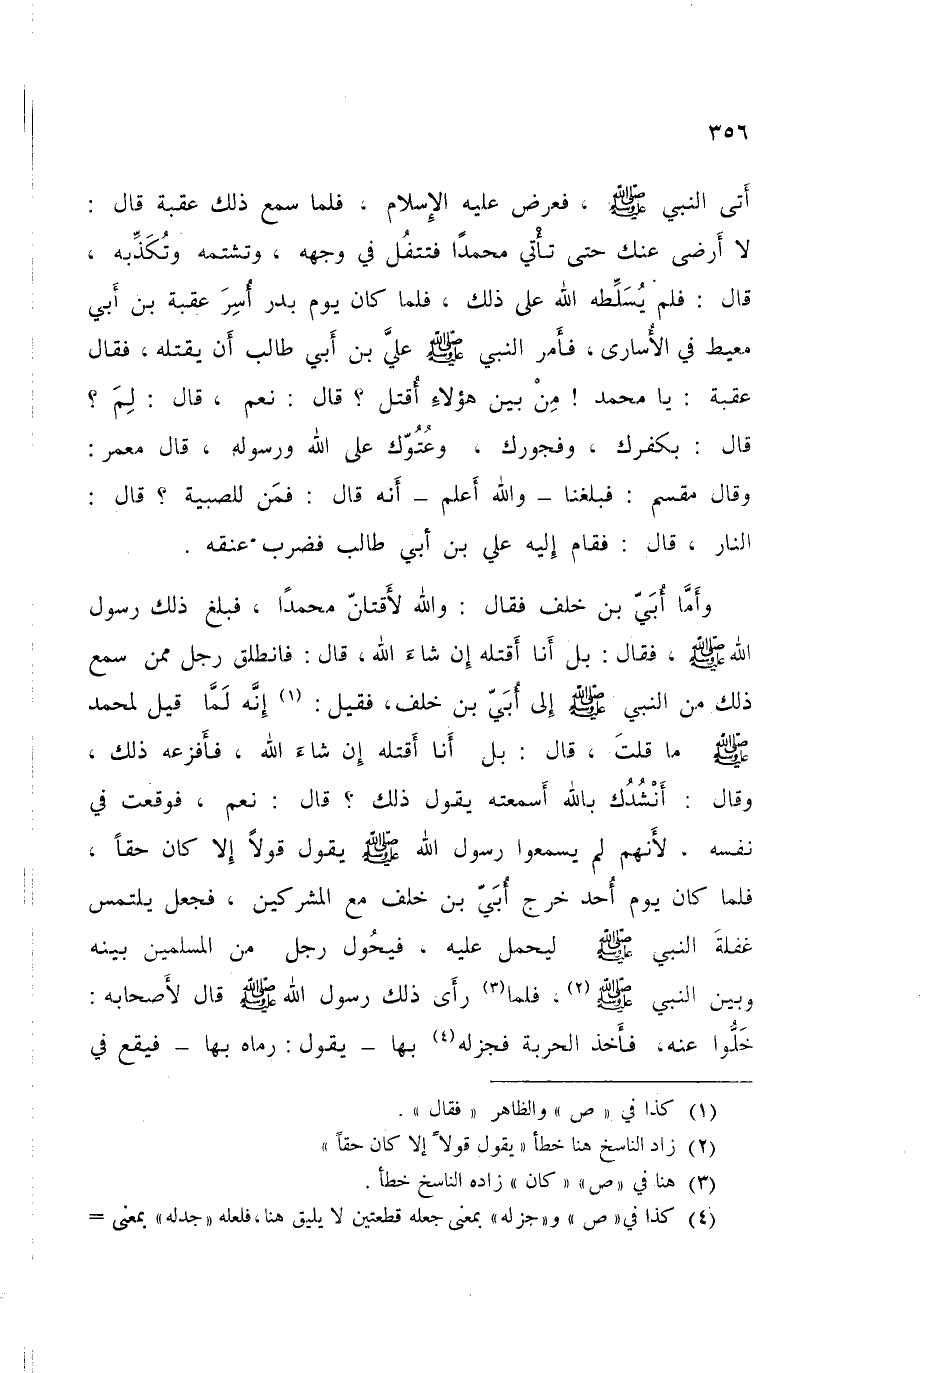 ٣٥٦
أَتى النبي ﷺ ، فعرض عليه الإِسلام ، فلما سمع ذلك عقبة قال :
لا أَرضى عنك حتى تأْتي محمدًا فتتفُل في وجهه ، وتشتمه وتُكَذِّبه ،
قال : فلم يُسَلِّطه الله على ذلك ، فلما كان يوم بدر أُسِرَ عقبة بن أَبي
معيط في الأُسارى ، فأَمر النبي ﷺ عليَّ بن أَبي طالب أَن يقتله ، فقال
عقبة : يا محمد ! مِنْ بين هؤلاءِ أُقتل ؟ قال : نعم ، قال : لِمَ ؟
قال : بكفرك ، وفجورك ، وعُتُوّك على الله ورسوله ، قال معمر :
وقال مقسم : فبلغنا – والله أَعلم – أَنه قال : فمَن للصبية ؟ قال :
النار ، قال : فقام إِليه علي بن أَبي طالب فضرب عنقه .
وأَمَّا أُبَيّ بن خلف فقال : والله لأَقتلنّ محمدًا ، فبلغ ذلك رسول
الله ﷺ ، فقال : بل أَنا أَقتله إِن شاءَ الله ، قال : فانطلق رجل ممن سمع
ذلك من النبي ﷺ إِلى أُبَيّ بن خلف ، فقيل : (١) إِنَّه لَمَّا قيل لمحمد
ﷺ ما قلتَ ، قال : بل أَنا أَقتله إِن شاءَ الله ، فأَفزعه ذلك ،
وقال : أَنْشُدُك بالله أَسمعته يقول ذلك ؟ قال : نعم ، فوقعت في
نفسه . لأَنهم لم يسمعوا رسول الله ﷺ يقول قولاً إِلا كان حقاً ،
فلما كان يوم أُحد خرج أُبَيّ بن خلف مع المشركين ، فجعل يلتمس
غفلةَ النبي ﷺ ليحمل عليه ، فيحُول رجل من المسلمين بينه
وبين النبي ﷺ (٢) ، فلما (٣) رأَى ذلك رسول الله ﷺ قال لأَصحابه :
خَلُّوا عنه، فأَخذ الحربة فجزله (٤) بها – يقول : رماه بها – فيقع في
(١) كذا في « ص » والظاهر « فقال » .
(٢) زاد الناسخ هنا خطأ « يقول قولاً إلا كان حقاً »
(٣) هنا في « ص » « كان » زاده الناسخ خطأ .
(٤) كذا في « ص » و « جزله » بمعنى جعله قطعتين لا يليق هنا ، فلعله « جدله » بمعنى =